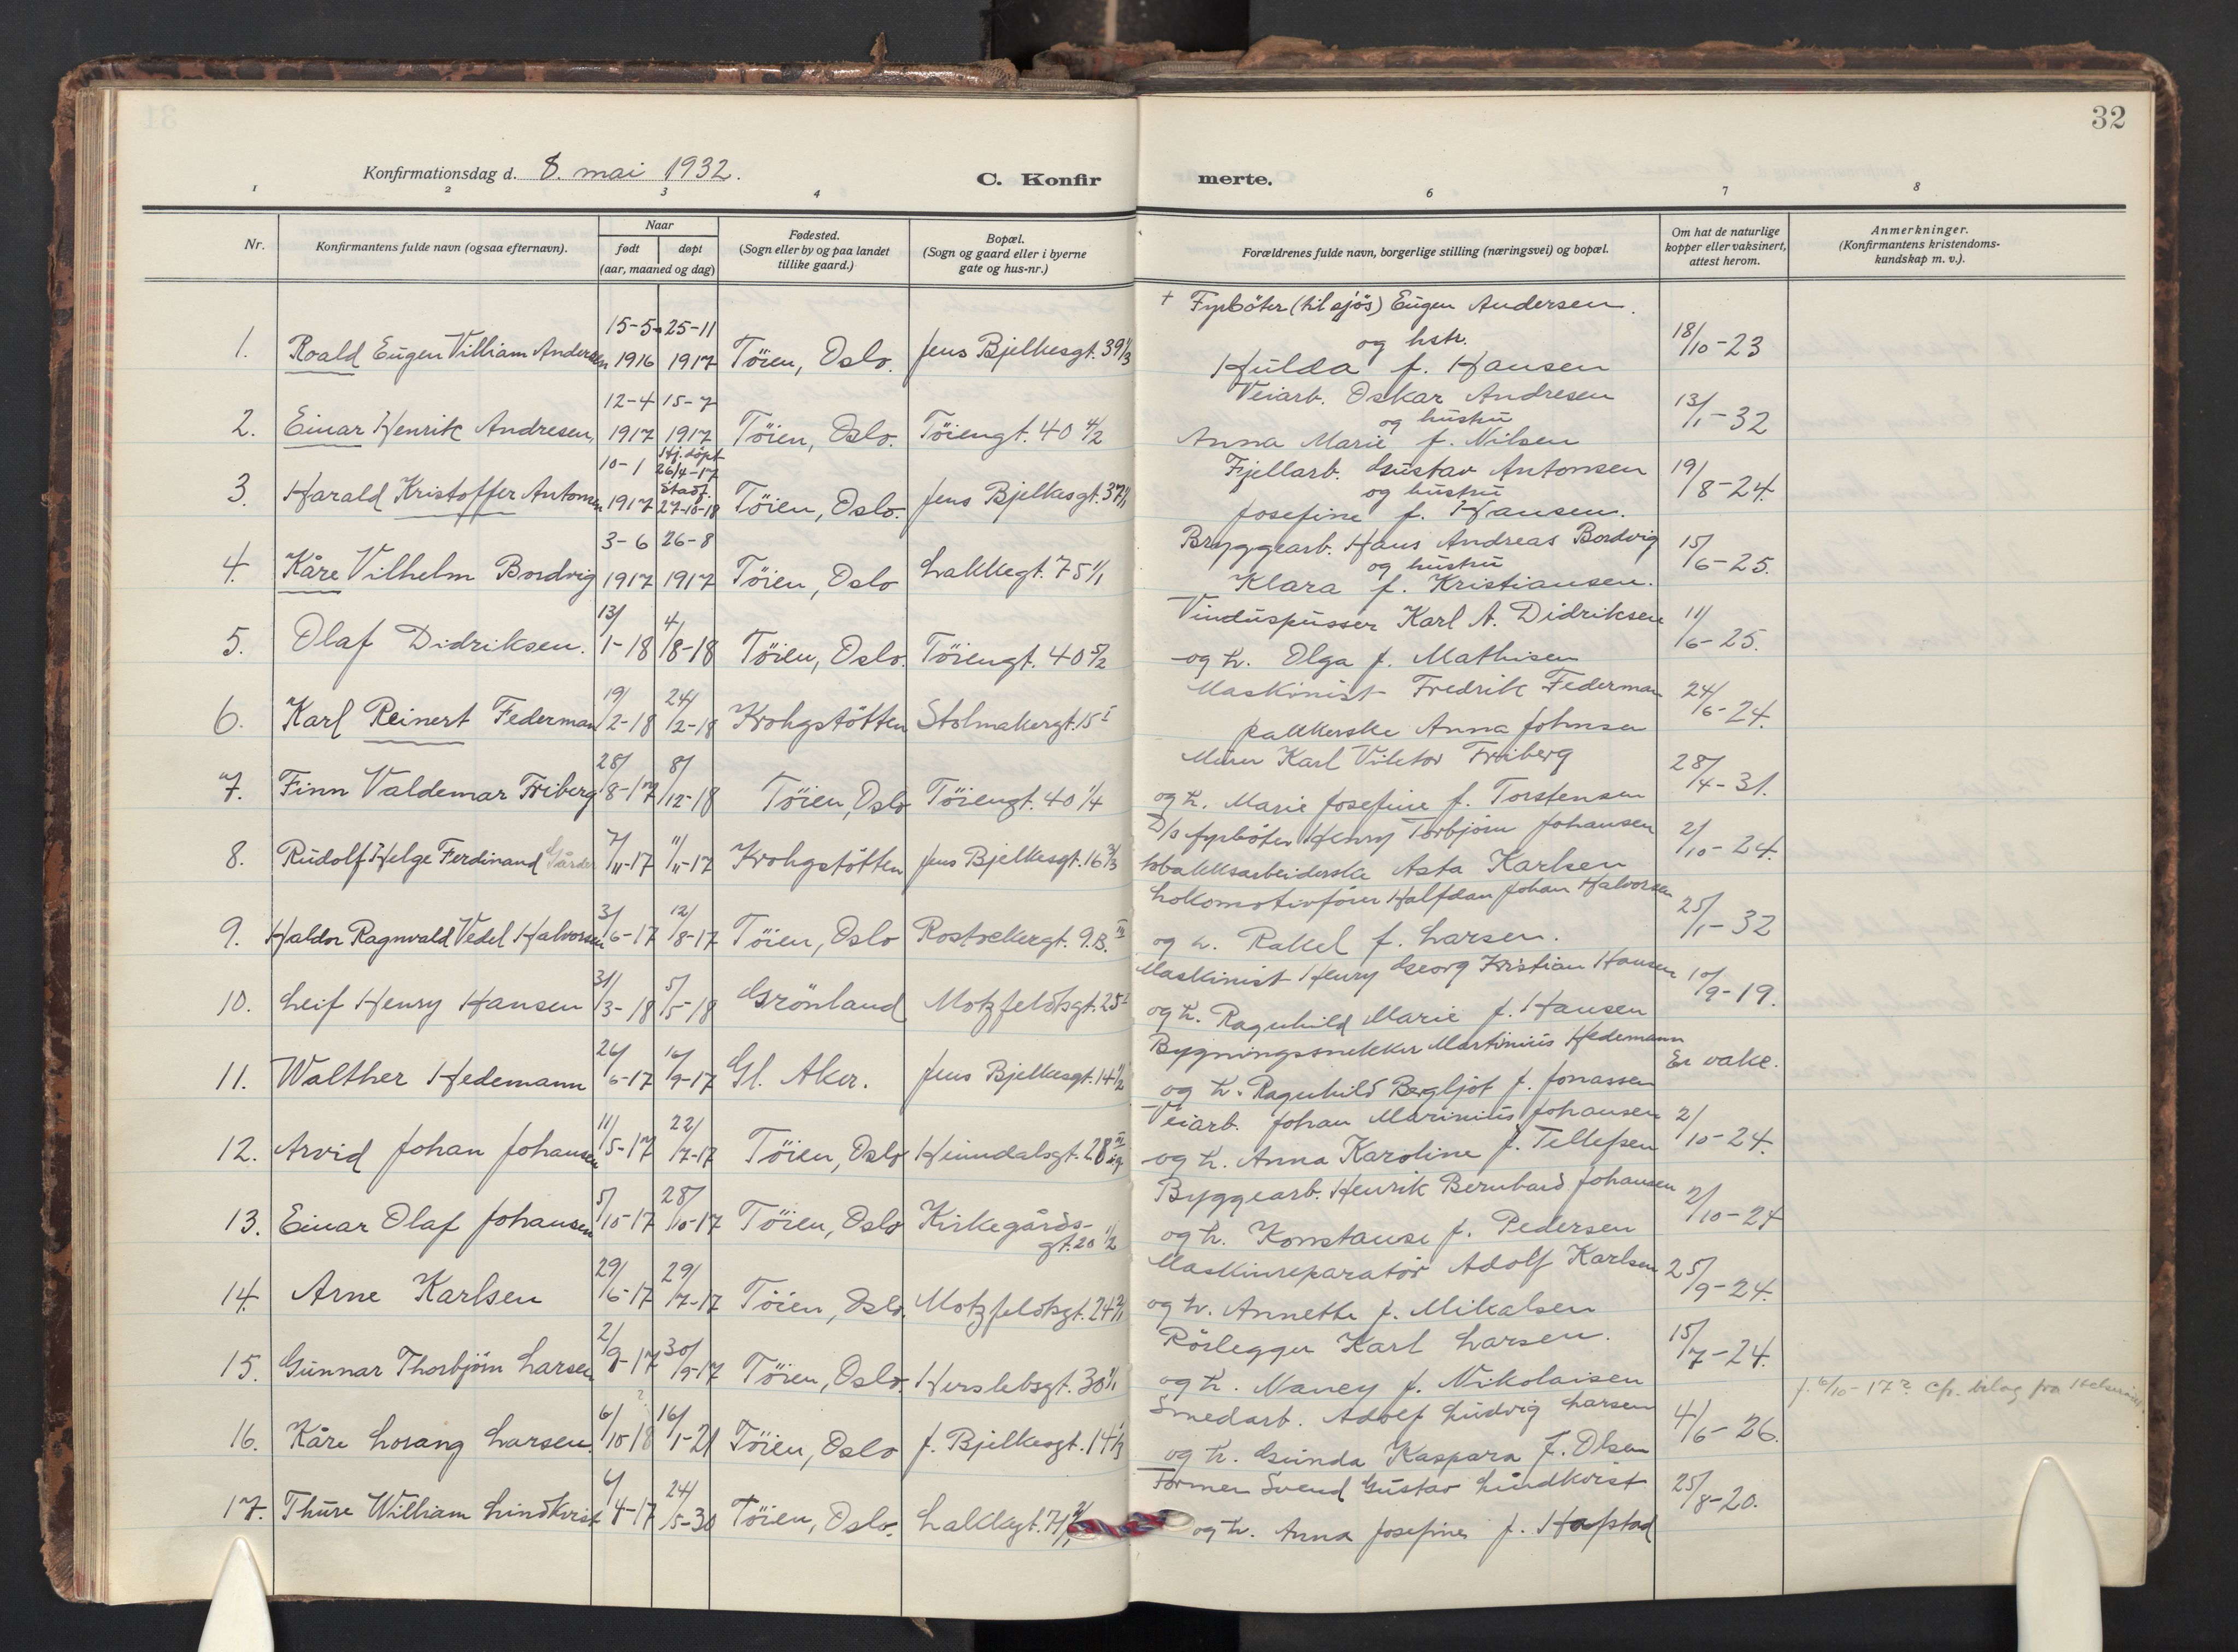 32
Konfirmationsdag d. 8. mai 1932.
C. Konfir merte.
1 2 3 4 6 7 8
Nr.
Konfirmantens fulde navn (ogsaa efternavn).
Naar
født døpt
(aar, maaned og dag)
Fødested.
(Sogn eller by og paa landet
tillike gaard.)
Bopæl.
(Sogn og gaard eller i byerne
gate og hus-nr.)
Forældrenes fulde navn, borgerlige stilling (næringsvei) og bopæl.
Om hat de naturlige
kopper eller vaksinert,
attest herom.
Anmerkninger.
(Konfirmantens kristendoms-
kundskap m. v.).
1. Roald Eugen Villiam Andersen 15-5-1916 25-11 1917 Töien, Oslo. Jens Bjelkesgt. 39 1/3
+ Fyrböter (til sjös) Eugen Andersen.
og hstr.
Hulda f. Hansen
18/10-23
2. Einar Henrik Andresen, 12-4 1917 15-7 1917 Töien, Oslo. Töiengt. 40 4/2
Veiarb. Oskar Andresen
og hustru
Anna Marie f. Nilsen
13/1-32
3. Harald Kristoffer Antonsen 10-1 1917 Hj. döpt 26/4-17 Stadf. 27-10-18 Töien, Oslo. Jens Bjelkesgt. 37 1/1
Fjellarb. Gustav Antonsen
og hustru
Josefine f. Hansen.
19/8-24.
4. Kåre Vilhelm Bordvig 3-6 1917 26-8 1917 Töien, Oslo Lakkegt. 75 1/1
Bryggearb. Hans Andreas Bordvig
og hustru
Klara f. Kristiansen.
15/6-25.
5. Olaf Didriksen. 13/1-18 4/8-18 Töien, Oslo. Töiengt. 40 5/2
Vinduspusser Karl A. Didriksen
og h. Olga f. Mathisen
11/6-25.
6. Karl Reinert Federman 19/2-18 24/2-18 Krohgstötten Stolmakergt. 15 I
Maskinist Fredrik Federman
pakkerske Anna Johnsen
24/6-24.
7. Finn Valdemar Friberg 28/8-17 8/12-18 Töien, Oslo Töiengt. 40 1/4
Murer Karl Viktor Friberg
og h. Marie Josefine f. Torstensen
28/4-31.
8. Rudolf Helge Ferdinand Gårder 7/11-17 11/11-17 Krohgstötten Jens Bjelkesgt. 16 3/3
D/s fyrböter Henry Torbjörn Johansen
tobakksarbeiderske Asta Karlsen
2/10-24.
9. Haldor Ragnvald Vedel Halvorsen 3/6-17 12/8-17 Töien, Oslo Rostockergt. 9.B. III
Lokomotivförer Halfdan Johan Halvorsen
og h. Rakel f. Larsen.
25/1-32
10. Leif Henry Hansen 31/3-18 5/5-18 Grönland Motzfeldtsgt. 25 I
Maskinist Henry Georg Kristian Hansen
og h. Ragnhild Marie f. Hansen
10/9-19.
11. Walther Hedemann 26/6-17 16/9-17 Gl. Aker. Jens Bjelkesgt. 14 1/2
Bygningssnekker Martinius Hedemann
og h. Ragnhild Bergljot f. Jonassen
Er vakc.
12. Arvid Johan Johansen 11/5-17 22/7-17 Töien, Oslo Heimdalsgt. 28 III
Veiarb. Johan Marinius Johansen
og h. Anna Karoline f. Tellefsen
2/10-24.
13. Einar Olaf Johansen 5/10-17 28/10-17 Töien, Oslo Kirkegårds-
gt. 20 1/2
Byggearb. Henrik Bernhard Johansen
og h. Konstanse f. Pedersen
2/10-24
14. Arne Karlsen 29/6-17 29/7-17 Töien, Oslo. Motzfeldtsgt. 24 2/1
Maskinreparatör Adolf Karlsen
og h. Annette f. Mikalsen
25/9-24.
15. Gunnar Thorbjörn Larsen 2/9-17 30/9-17 Töien, Oslo. Herslebsgt. 30 1/1
Rörlegger Karl Larsen.
og h. Nancy f. Nikolaisen
15/7-24.
16. Kåre Lorang Larsen 6/10-18 ? 16/1-21 Töien, Oslo J. Bjelkesgt. 14 1/3
Smedarb. Adolf Ludvig Larsen
og h. Gunda Kaspara f. Olsen
4/6-26.
f. 6/10-17? cfr. bilag fra
17. Thure William Lindkvist 6/4-17 24/5-30 Töien, Oslo. Lakkegt. 71
Former Svend Gustav Lindkvist
og h. Anna Josefine f. Hafstad
25/8-20.